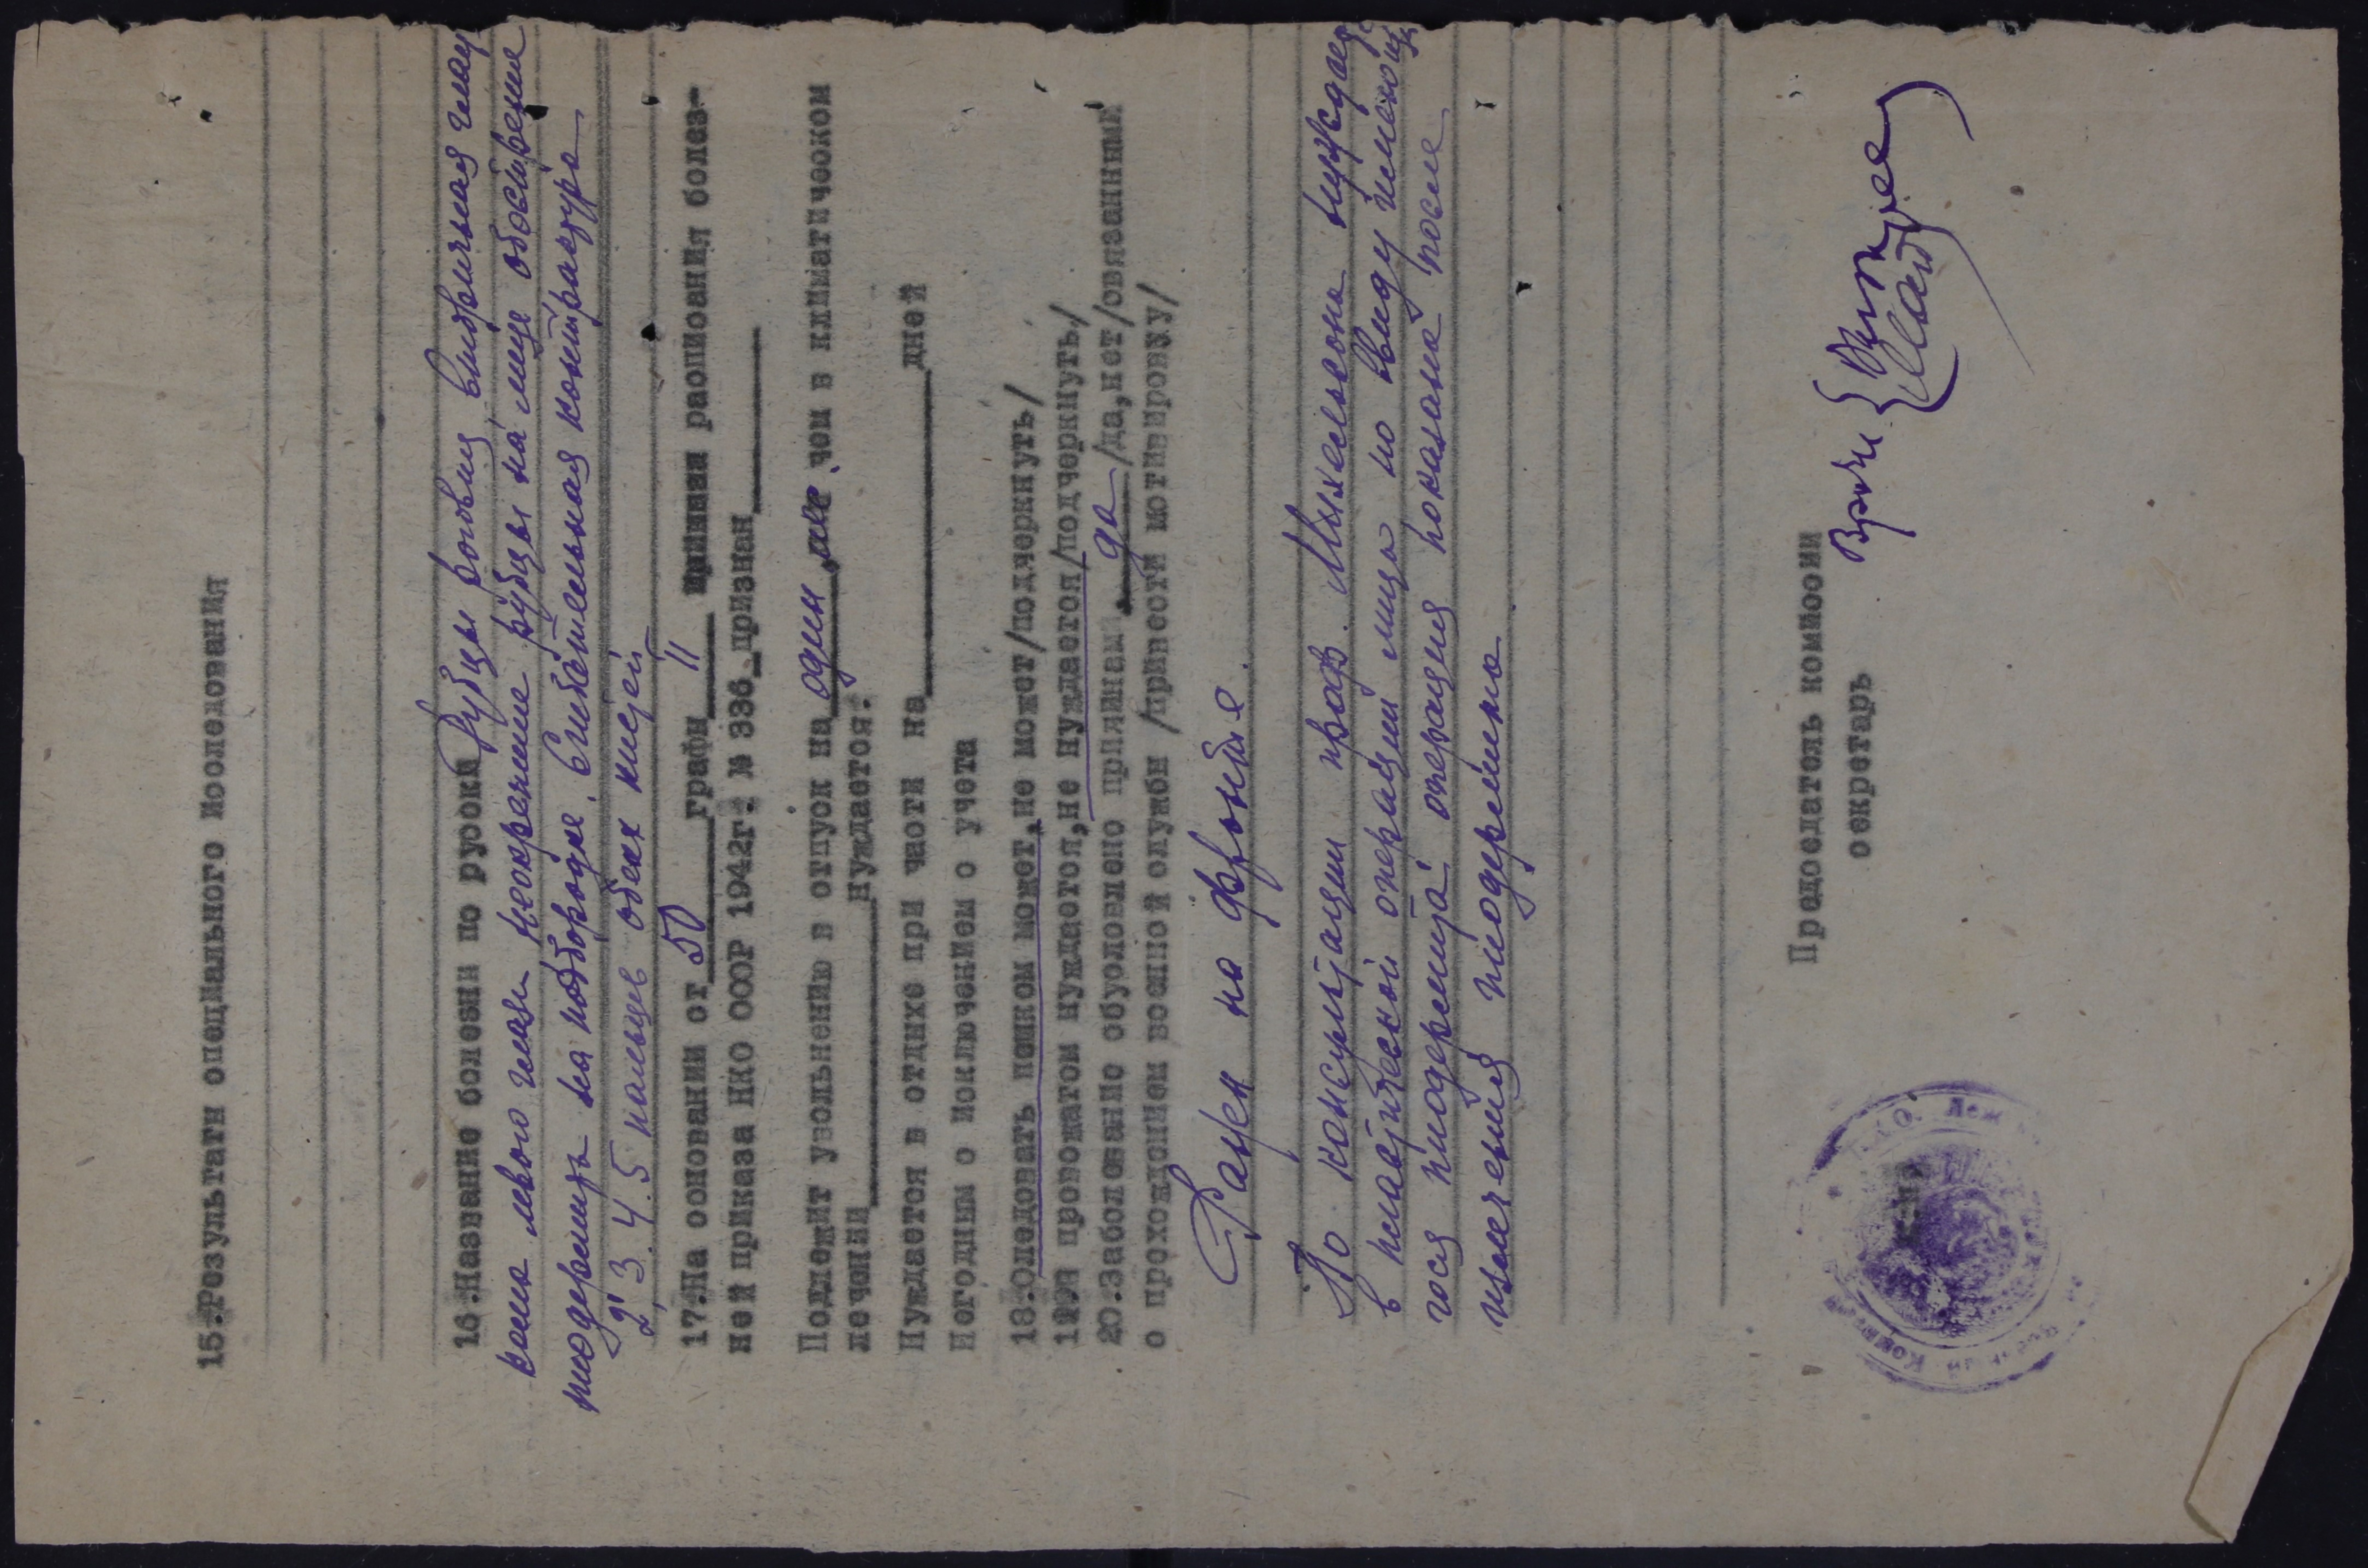 15.Результати специального исследования
16.Название болезни по русски Рубцы роговиц вторичная глау
кома левого глаза рубцы на лице обострение
пиодермита на подбородке. Сгибательная контрактура
2, 3. 4. 5 пальцев обеих кистей
17.На основании ст. 50 графы II приказа расписания болез-
ней приказа НКО СССР 1942г. № 336 признан
Подлежит увольнению в отпуск на один чем в климатическом
лечении нуждается.
Нуждается в отдыхе при части на дней
Негодным с исключением с учета
18.Следовать пешком может,не может/подчеркнуть/
19. провожатом нуждается,не нуждается/подчеркнуть/
20.Заболевание обусловлено причинам да /да,нет/связанными
с прохождением военной службы /привести мотивировку/
Ранен на фронте.
По консультации проф. Михельсона нуждает
в пластической операции лица но ввиду имеюще
гося пиодермита операция показана после
излечения пиодермита
Председатель комиссии
секретарь
Врачи